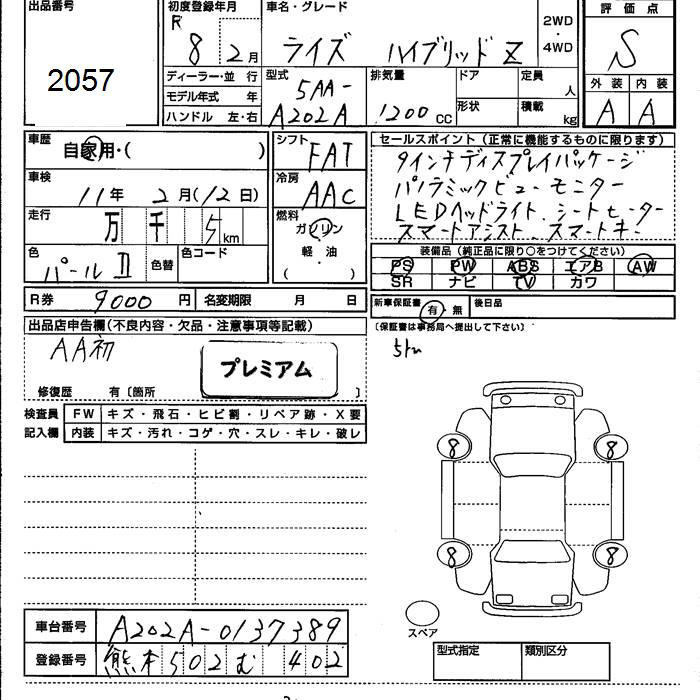 出品番号
2057
初度登録年月
R
8 2月
車名・グレード
ライズ ハイブリッド Z
2WD
・
4WD
評価点
S
外装 内装
A A
ディーラー・並行
モデル年式 年
ハンドル 左・右
型式
5AA-
A202A
排気量
1200 CC
ドア
形状
定員
人
積載
kg
車歴
自家用・( )
車検
11年 2月(12日)
走行
万 千 5 km
色
パールII
色替
色コード
シフト
FAT
冷房
AAC
燃料
ガソリン
軽油
( ・ )
セールスポイント(正常に機能するものに限ります)
9インチディスプレイパッケージ
パノラミックビューモニター
LEDヘッドライト.シートヒーター
スマートアシスト.スマートキー
装備品(純正品に限り○をつけてください)
PS PW ABS エアB AW
SR ナビ TV カワ
R券 9000円 名変期限 月 日
新車保証書 有・無 後日品
(保証書は事務局へ提出して下さい)
出品店申告欄(不良内容・欠品・注意事項等記載)
AA初
プレミアム
修復歴 有〔箇所 〕
検査員記入欄
FW キズ・飛石・ヒビ割・リペア跡・X要
内装 キズ・汚れ・コゲ・穴・スレ・キレ・破レ
8 8
8 8
スペア
車台番号 A202A-0137389
登録番号 熊本502む 402
型式指定 類別区分